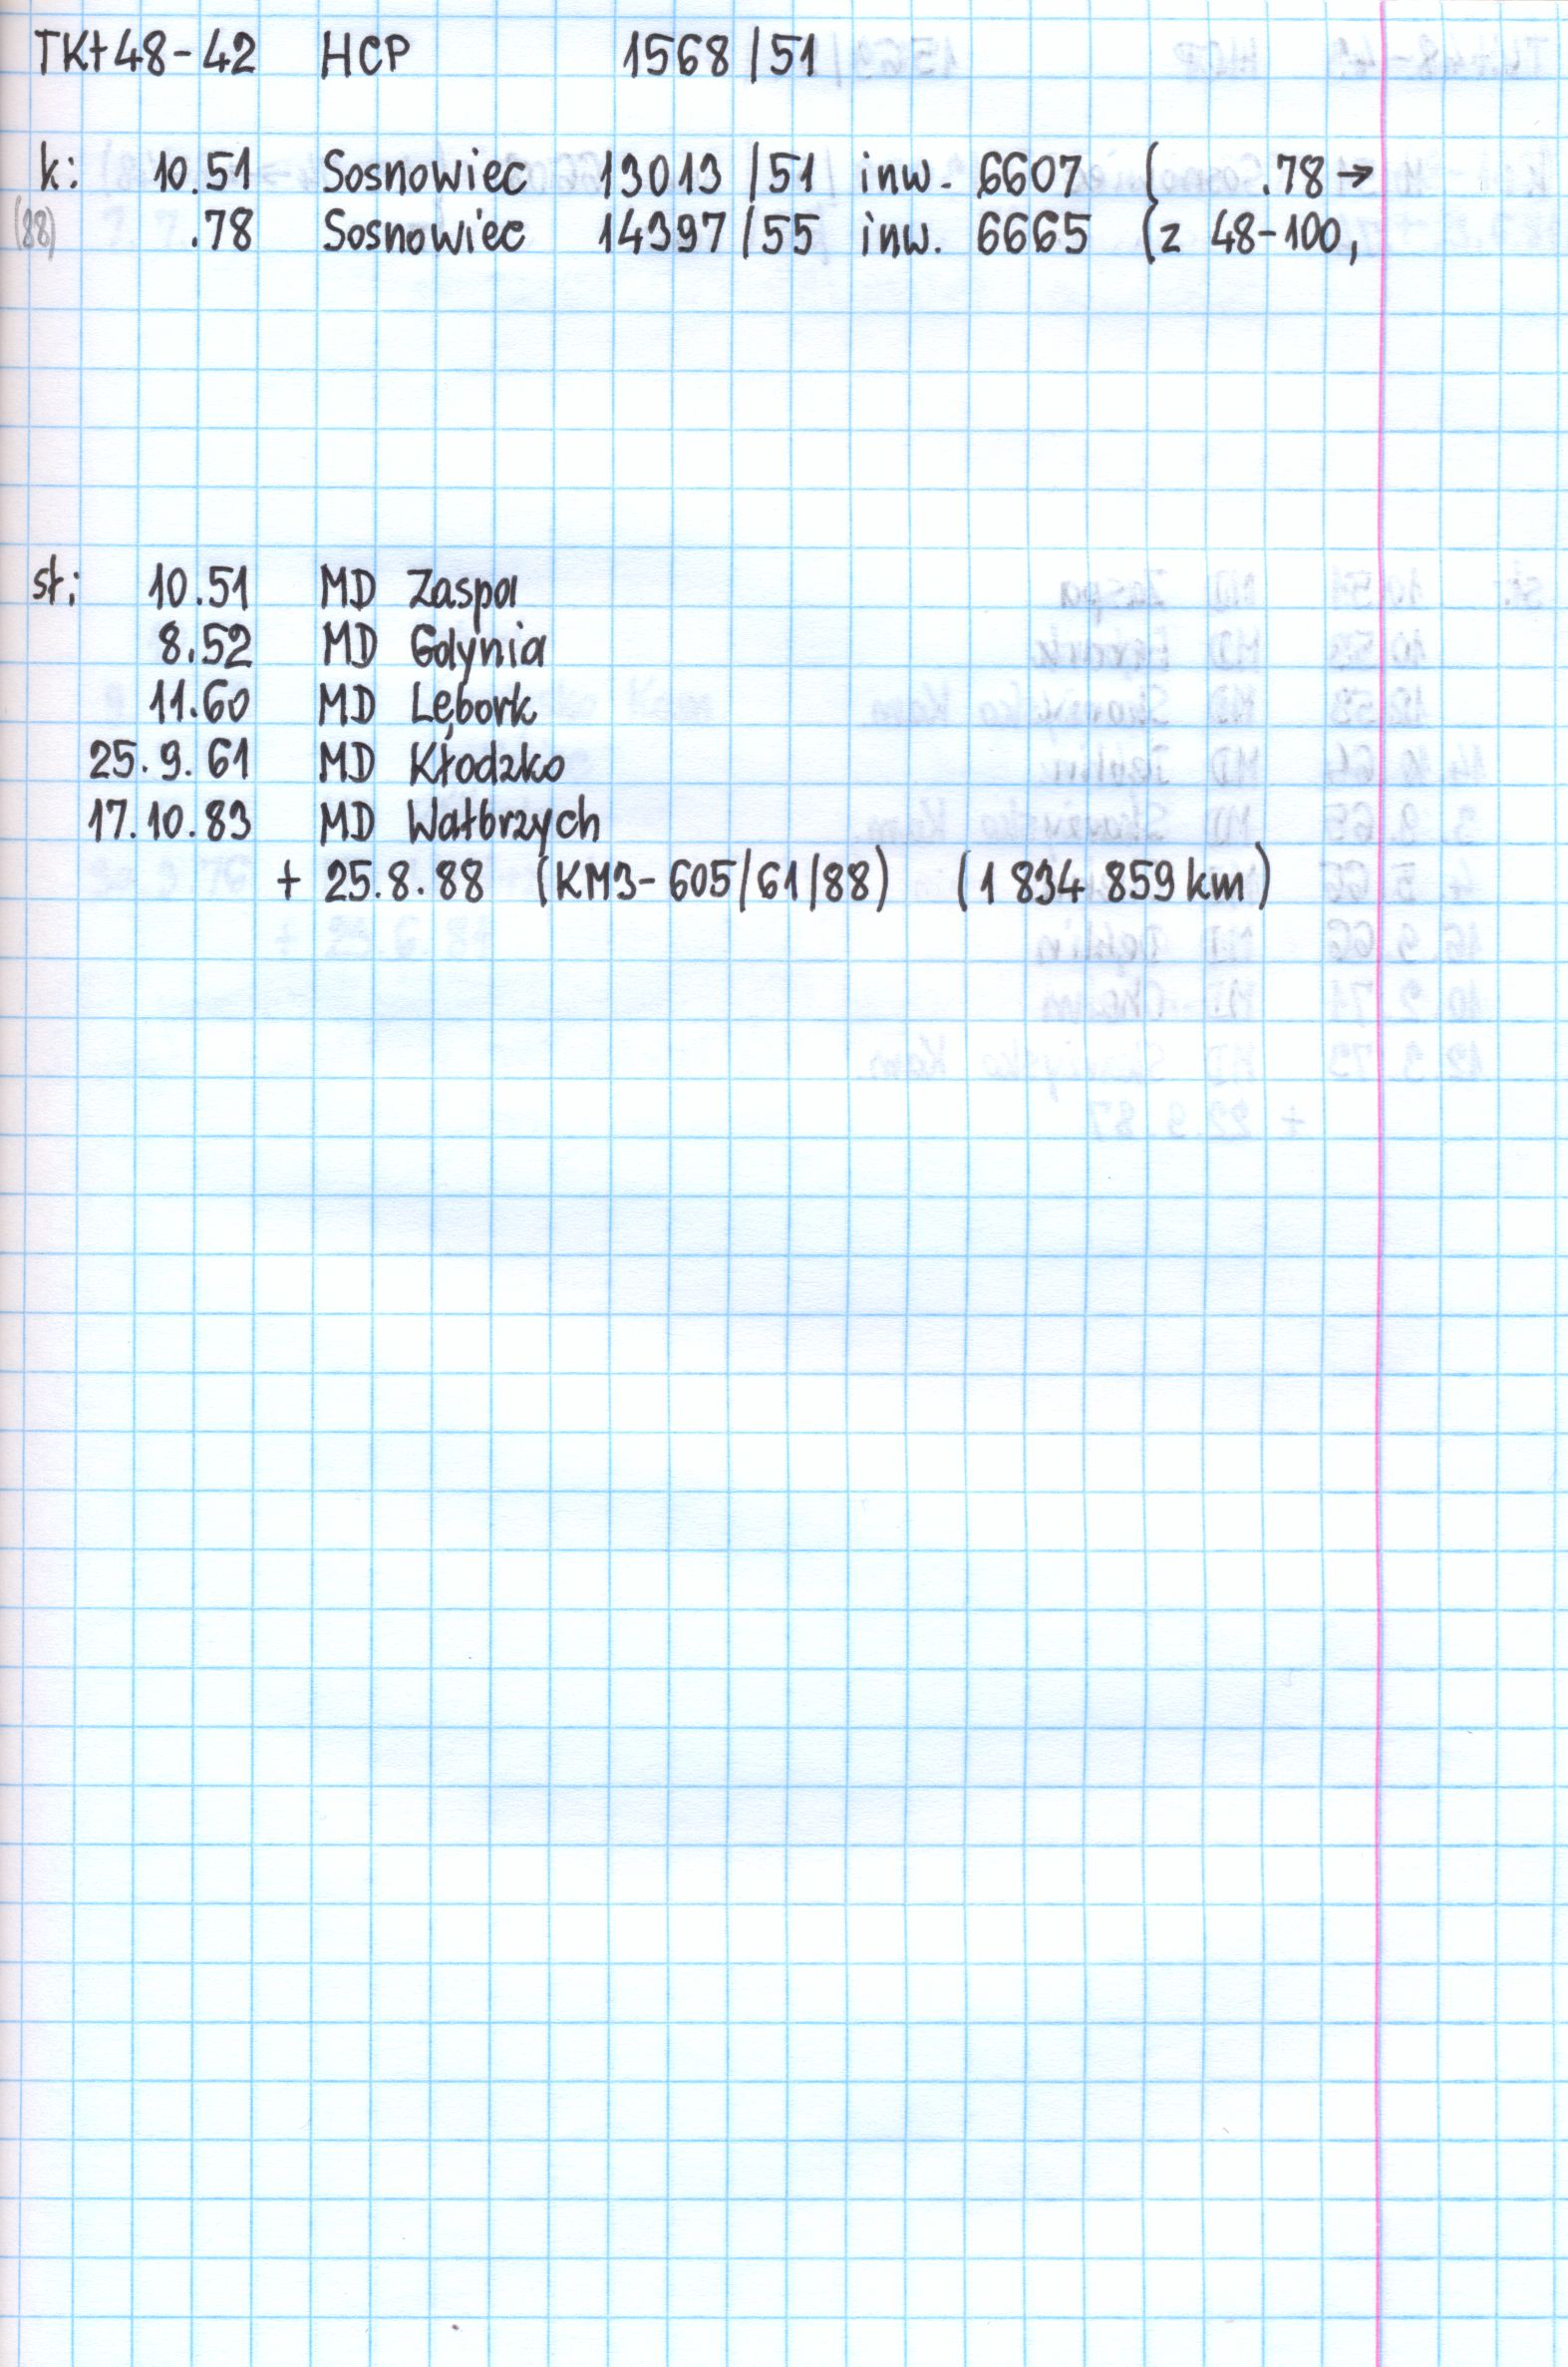 TKt48-42 HCP 1568/51
k: 10.51 Sosnowiec 13013/51 inw. 6607 ( .78→
(88) .78 Sosnowiec 14397/55 inw. 6665 (z 48-100,
st: 10.51 MD Zaspa
8.52 MD Gdynia
11.60 MD Lębork
25.9.61 MD Kłodzko
17.10.83 MD Wałbrzych
+ 25.8.88 (KM3-605/61/88) (1 834 859 km)